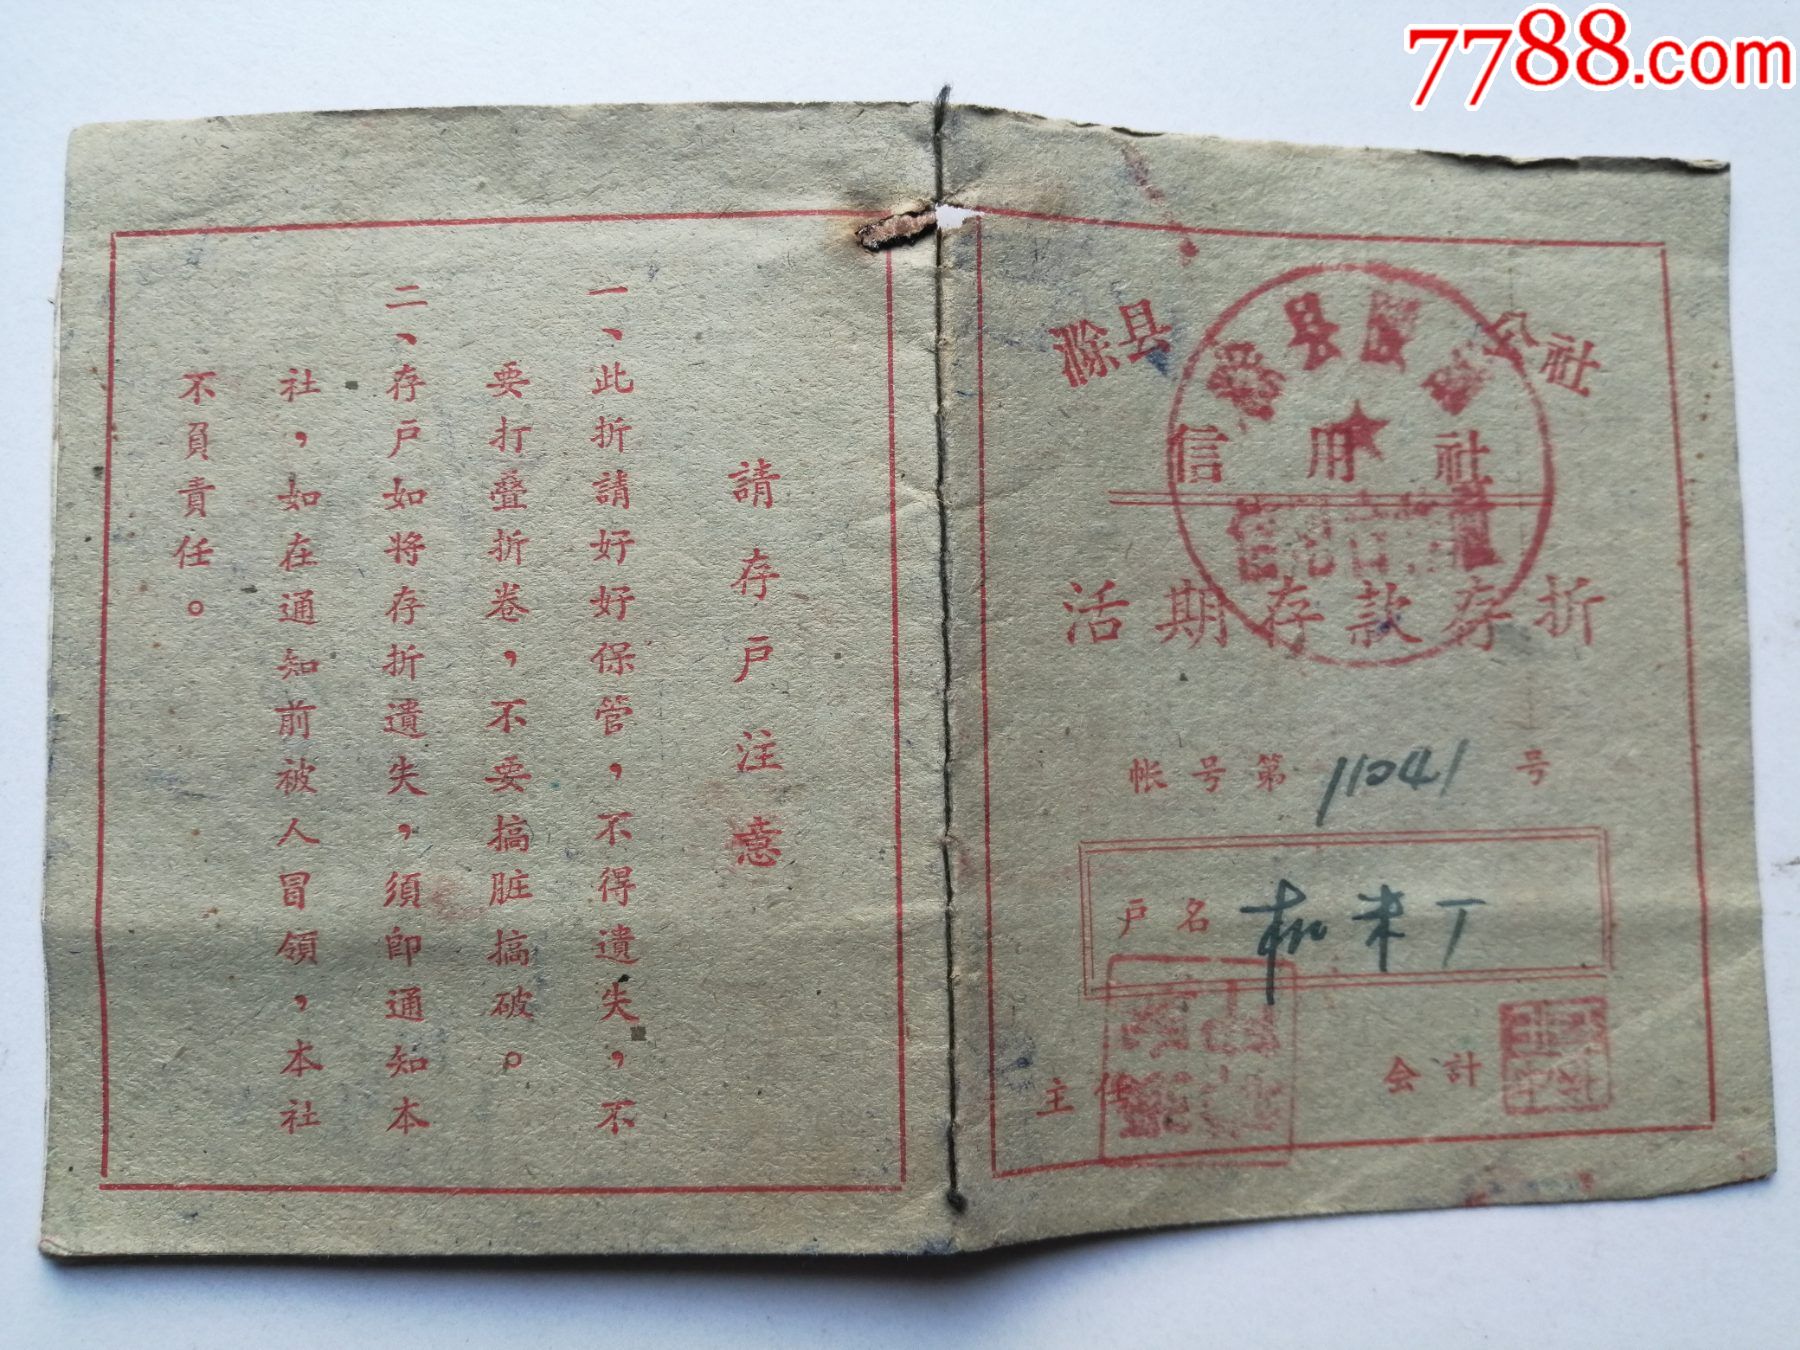 7788.com
滁县 公社
信用社
活期存款存折
帐号第11041号
户名
主任 会计
請存戶注意
一、此折請好好保管，不得遺失，不
要打叠折卷，不要搞脏搞破。
二、存戶如将存折遺失，須即通知本
社，如在通知前被人冒領，本社
不負責任。